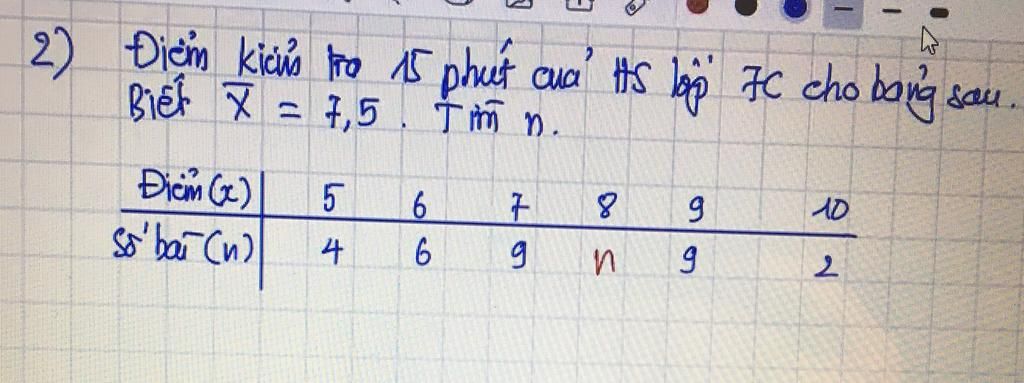 2) Điểm kiểm tra 15 phút của HS lớp 7C cho bảng sau.
Biết X̅ = 7,5. Tìm n.
Điểm (x) 5 6 7 8 9 10
Số bài (n) 4 6 9 n 9 2